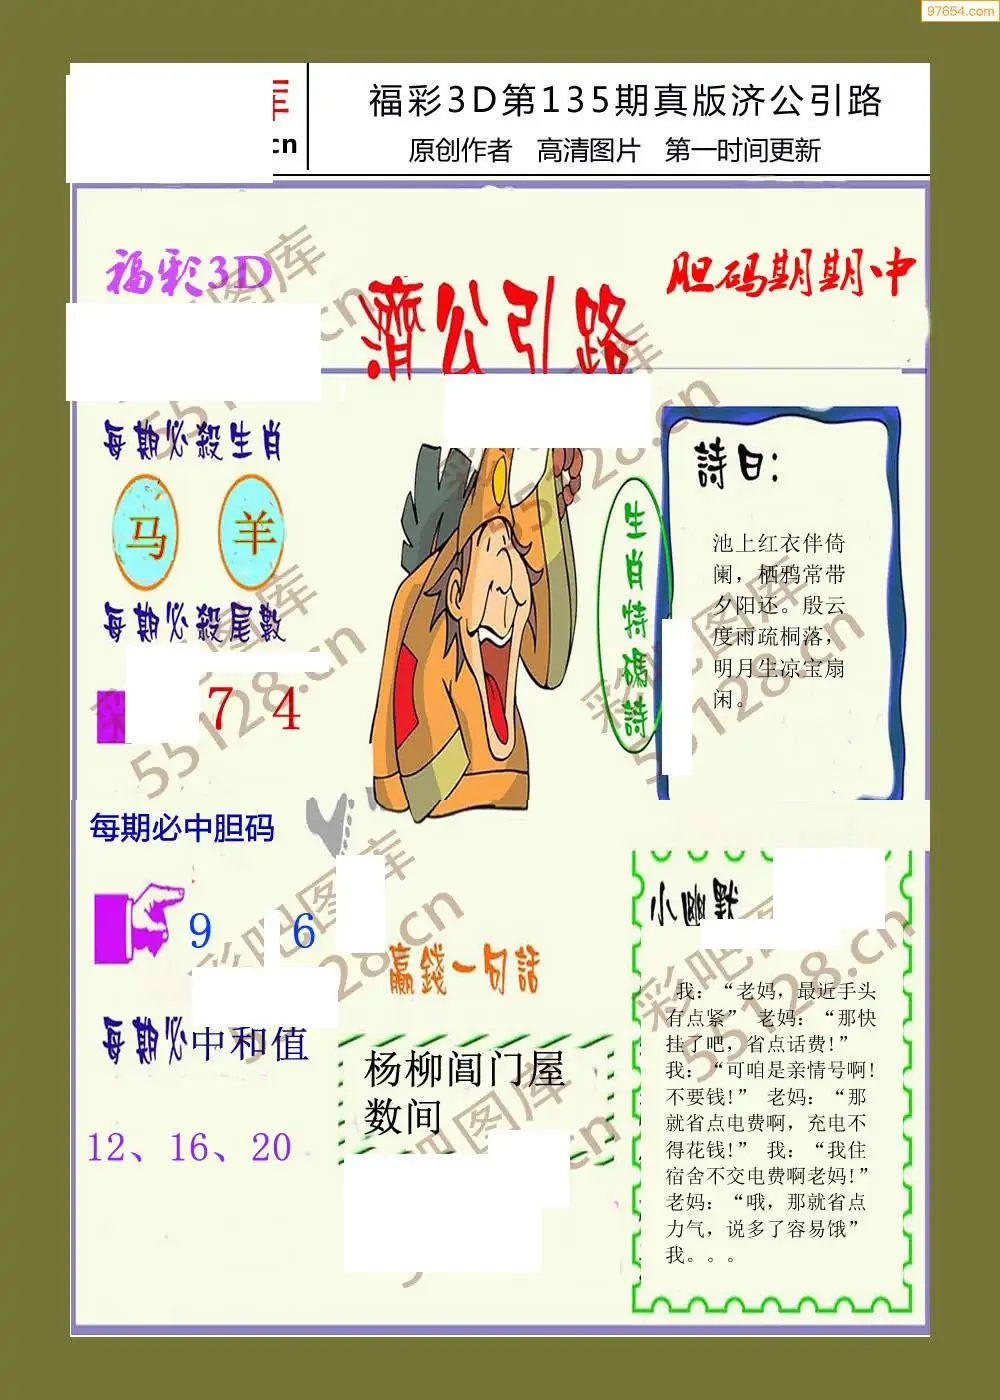 97654.com
福彩3D第135期真版济公引路
cn
原创作者 高清图片 第一时间更新
福彩3D
胆码期期中
濟公引路
每期必殺生肖
马 羊
每期必殺尾數
7 4
每期必中胆码
9 6
每期必中和值
12、16、20
生肖特碼詩
詩曰:
池上红衣伴倚
阑，栖鸦常带
夕阳还。殷云
度雨疏桐落，
明月生凉宝扇
闲。
赢錢一句話
杨柳闾门屋
数间
小幽默
我：“老妈，最近手头
有点紧” 老妈：“那快
挂了吧，省点话费!”
我：“可咱是亲情号啊!
不要钱!” 老妈：“那
就省点电费啊，充电不
得花钱!” 我：“我住
宿舍不交电费啊老妈!”
老妈：“哦，那就省点
力气，说多了容易饿”
我。。。
彩吧图库
55128.cn
彩吧图库
55128.cn
彩吧图库
55128.cn